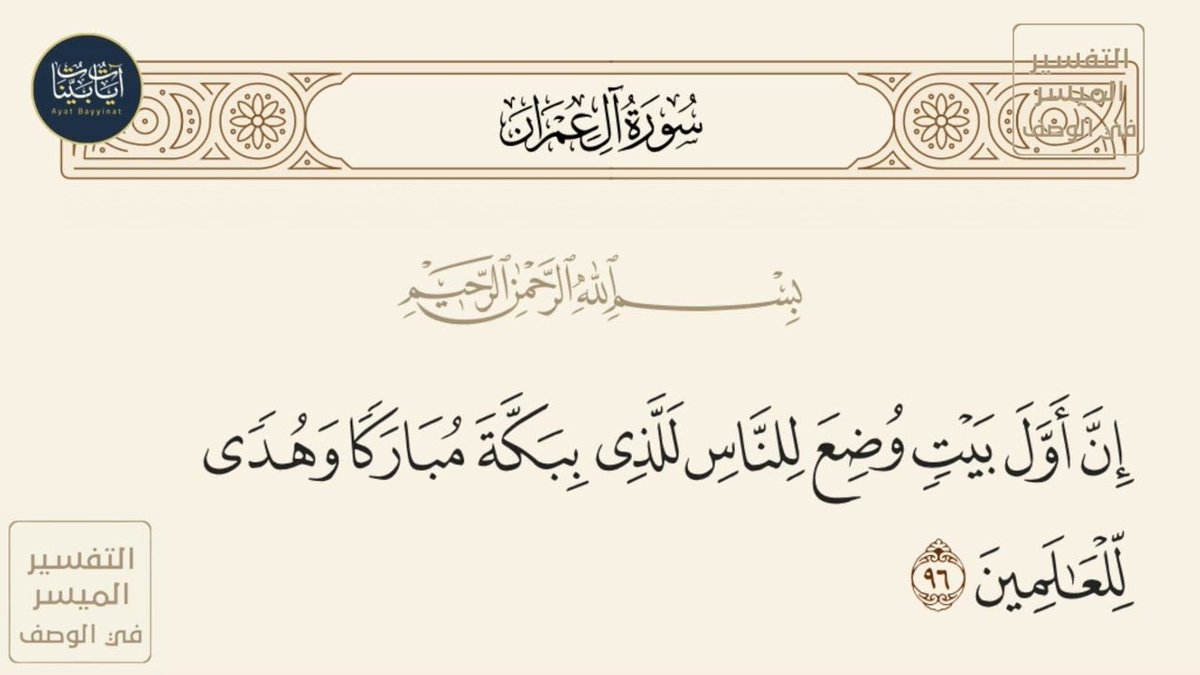 آيَاتٌ بَيِّنَاتٌ
Ayat Bayyinat
التفسير
الميسر
في الوصف
سُورَةُ آلِ عِمْرَانَ
بِسْمِ ٱللَّهِ ٱلرَّحْمَٰنِ ٱلرَّحِيمِ
إِنَّ أَوَّلَ بَيْتٍ وُضِعَ لِلنَّاسِ لَلَّذِى بِبَكَّةَ مُبَارَكًا وَهُدًى
لِّلْعَـٰلَمِينَ ٩٦
التفسير
الميسر
في الوصف